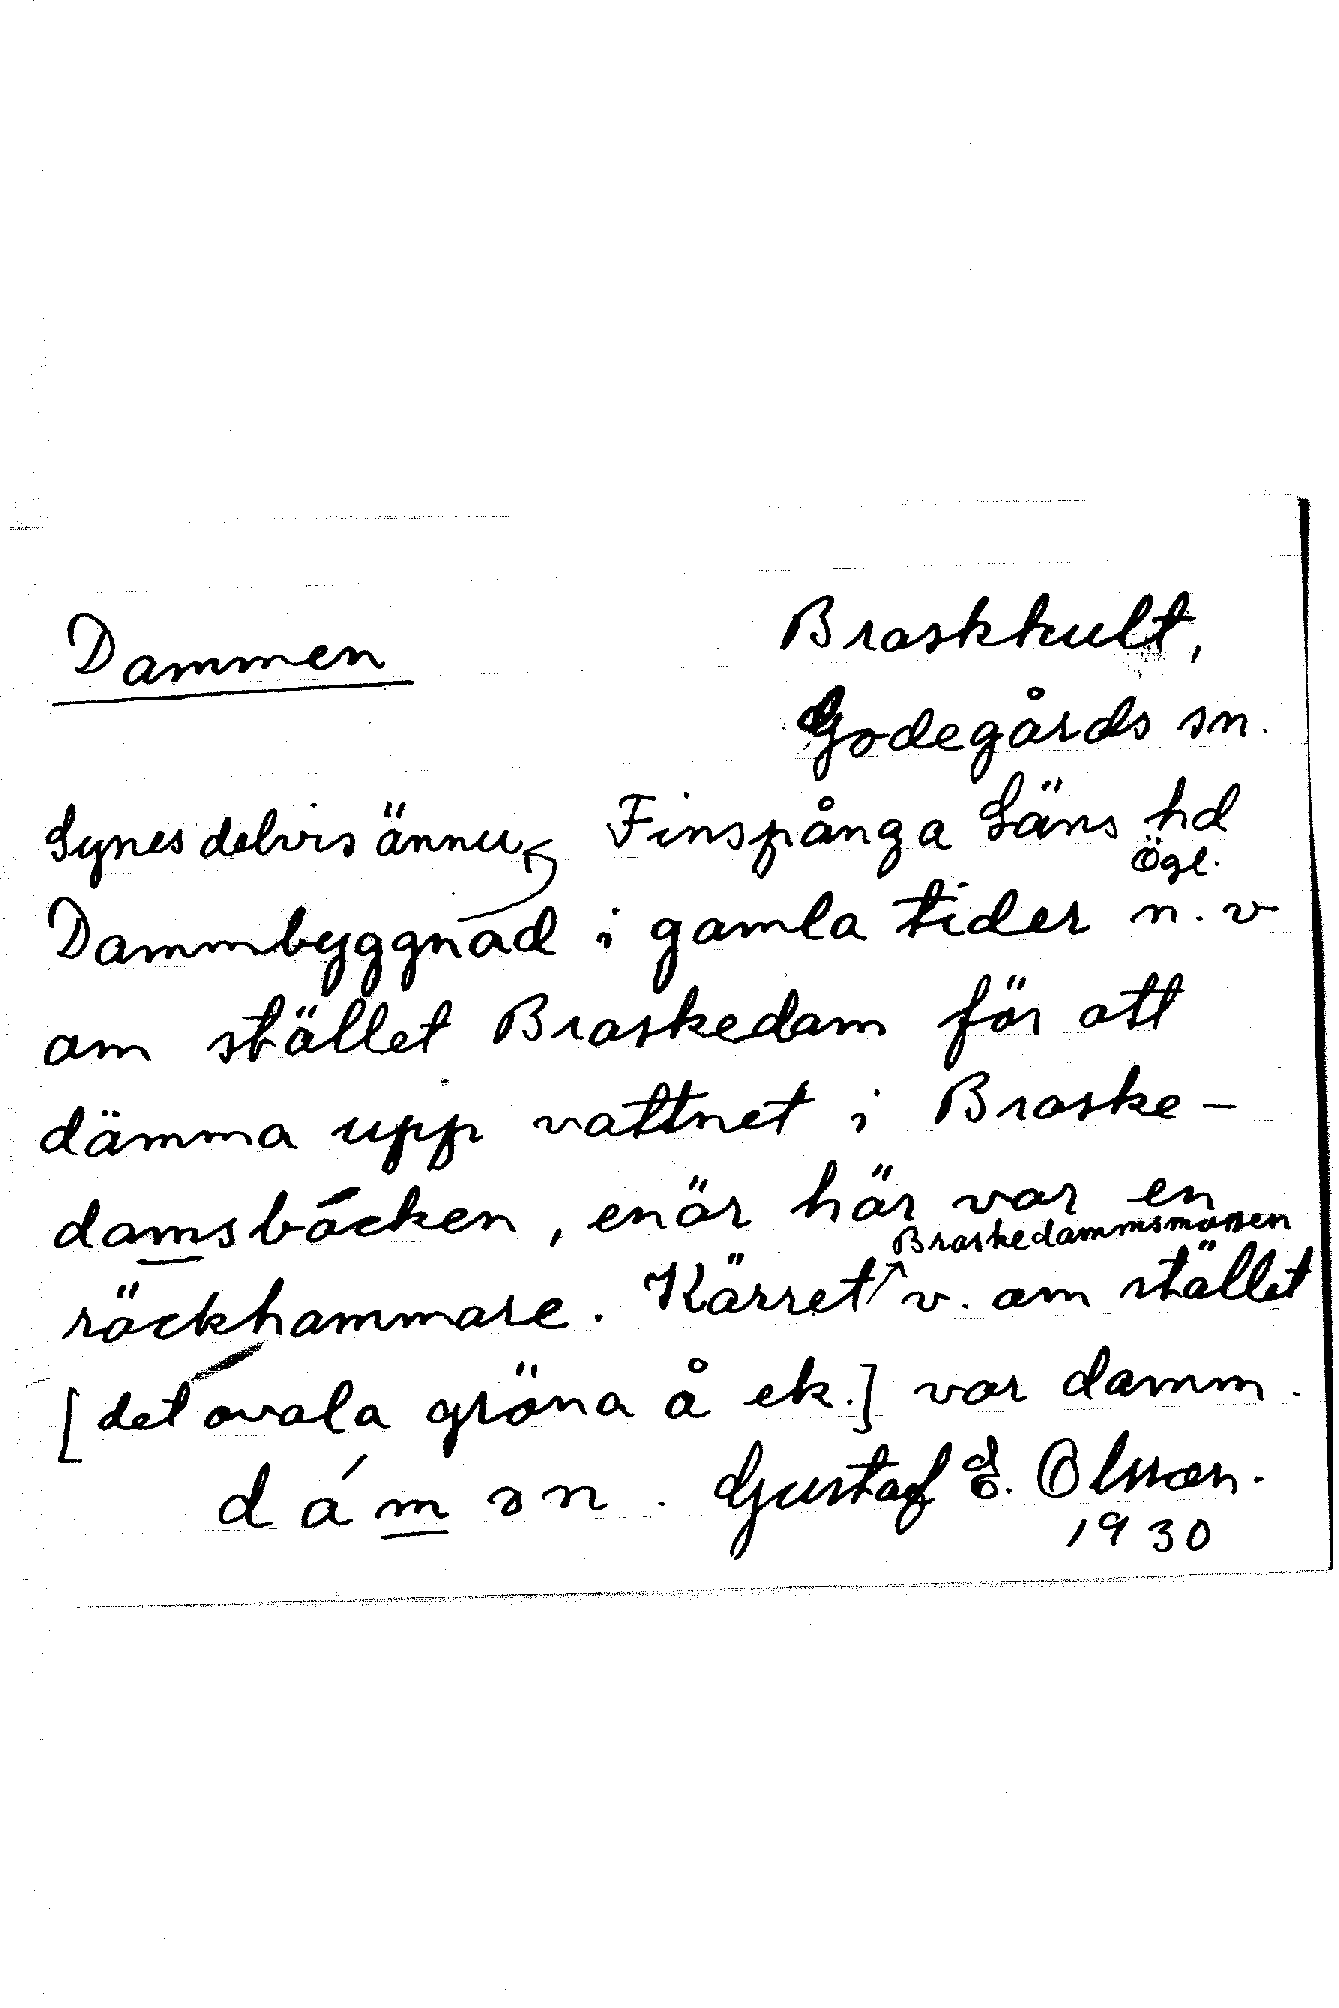 Dammen
Braskhult,
Godegårds sn.
Finspånga Läns hd
Ögl.
Synes delvis ännu
Dammbyggnad i gamla tider n.v
om stället Braskedam för att
dämma upp vattnet i Braske-
damsbäcken, enär här var en
Braskedammsmossen
räckhammare. Kärret v. om stället
[det ovala gröna å ek.] var damm.
dámən. Gustaf E. Olsson.
1930